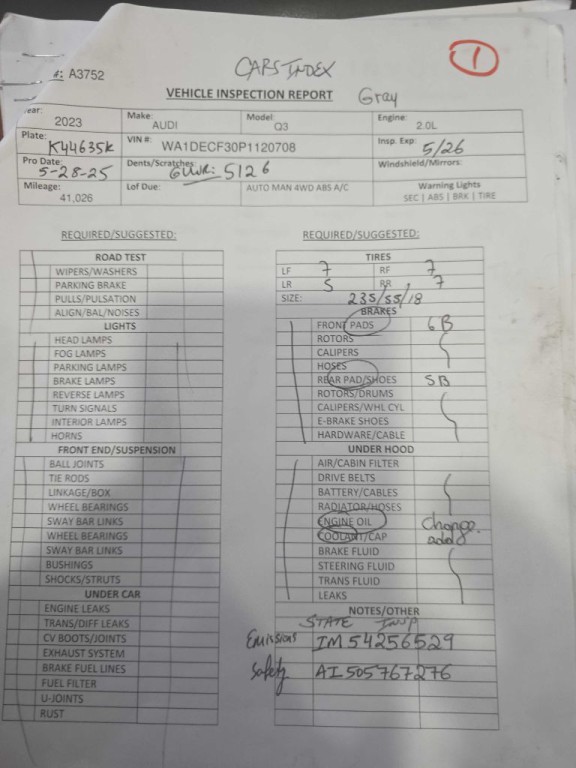 #: A3752
CARS INDEX
1
VEHICLE INSPECTION REPORT Gray
ear: 2023 Make: AUDI Model: Q3 Engine: 2.0L
Plate: K44635K VIN #: WA1DECF30P1120708 Insp. Exp: 5/26
Pro Date: 5-28-25 Dents/Scratches: GVWR: 5126 Windshield/Mirrors:
Mileage: 41,026 Lof Due: AUTO MAN 4WD ABS A/C Warning Lights
SEC | ABS | BRK | TIRE
REQUIRED/SUGGESTED:
ROAD TEST
WIPERS/WASHERS
PARKING BRAKE
PULLS/PULSATION
ALIGN/BAL/NOISES
LIGHTS
HEAD LAMPS
FOG LAMPS
PARKING LAMPS
BRAKE LAMPS
REVERSE LAMPS
TURN SIGNALS
INTERIOR LAMPS
HORNS
FRONT END/SUSPENSION
BALL JOINTS
TIE RODS
LINKAGE/BOX
WHEEL BEARINGS
SWAY BAR LINKS
WHEEL BEARINGS
SWAY BAR LINKS
BUSHINGS
SHOCKS/STRUTS
UNDER CAR
ENGINE LEAKS
TRANS/DIFF LEAKS
CV BOOTS/JOINTS
EXHAUST SYSTEM
BRAKE FUEL LINES
FUEL FILTER
U-JOINTS
RUST
REQUIRED/SUGGESTED:
TIRES
LF 7 RF 7
LR 5 RR 7
SIZE: 235/55/18
BRAKES
FRONT PADS 6B
ROTORS
CALIPERS
HOSES
REAR PAD/SHOES 5B
ROTORS/DRUMS
CALIPERS/WHL CYL
E-BRAKE SHOES
HARDWARE/CABLE
UNDER HOOD
AIR/CABIN FILTER
DRIVE BELTS
BATTERY/CABLES
RADIATOR/HOSES
ENGINE OIL change
COOLANT/CAP add
BRAKE FLUID
STEERING FLUID
TRANS FLUID
LEAKS
NOTES/OTHER
STATE INSP
Emissions IM54256529
Safety AI505767276